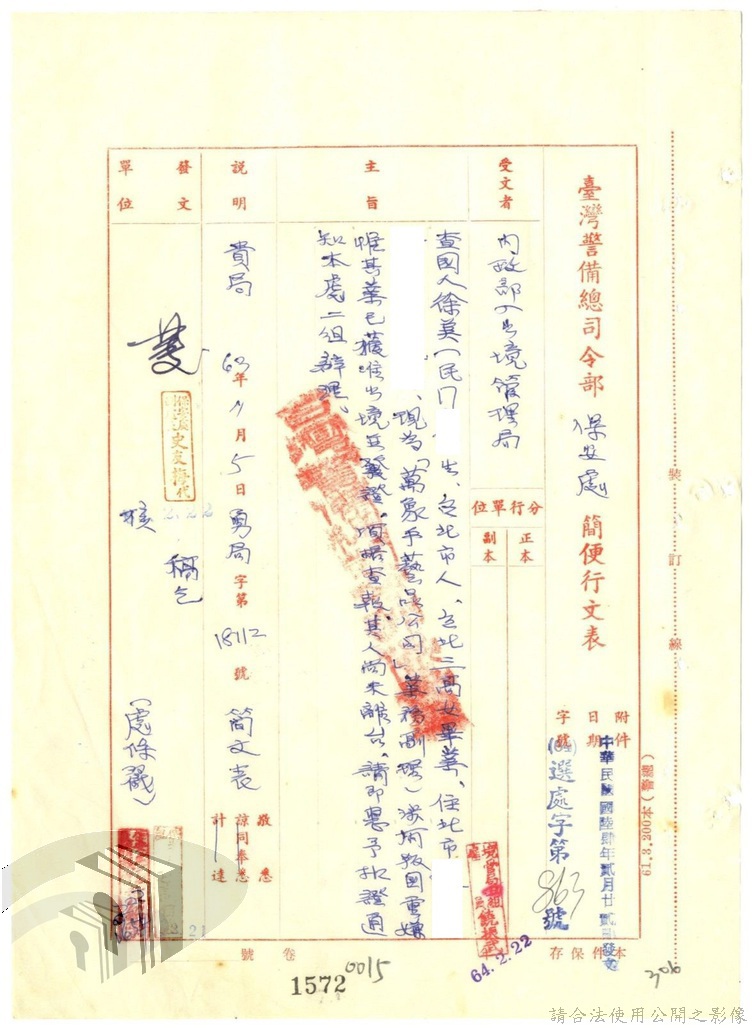 臺灣警備總司令部 保安處 簡便行文表
附件
日期 中華民國陸肆年貳月廿貳日發文
字號 (64)選處字第863號
本件保存
受文者 內政部入出境管理局
分行單位
正本
副本
主旨
查國人徐莫(民 出、台北市人、台北三高女畢業、住北市
、現為「萬象手藝品公司」業務副理)涉有叛國重嫌
惟其業已獲准出境並發證。頃據查報,其人尚未離台。請即惠予扣證通
知本處二組辦理。
說明
貴局 63年11月5日勇局字第18112號 簡文表
敬悉
諒同奉悉
計達
發文單位
史文梅代
核 2.22
稿乞
(處保霰)
卷號
64.2.22
1572
0015
裝訂線
請合法使用公開之影像